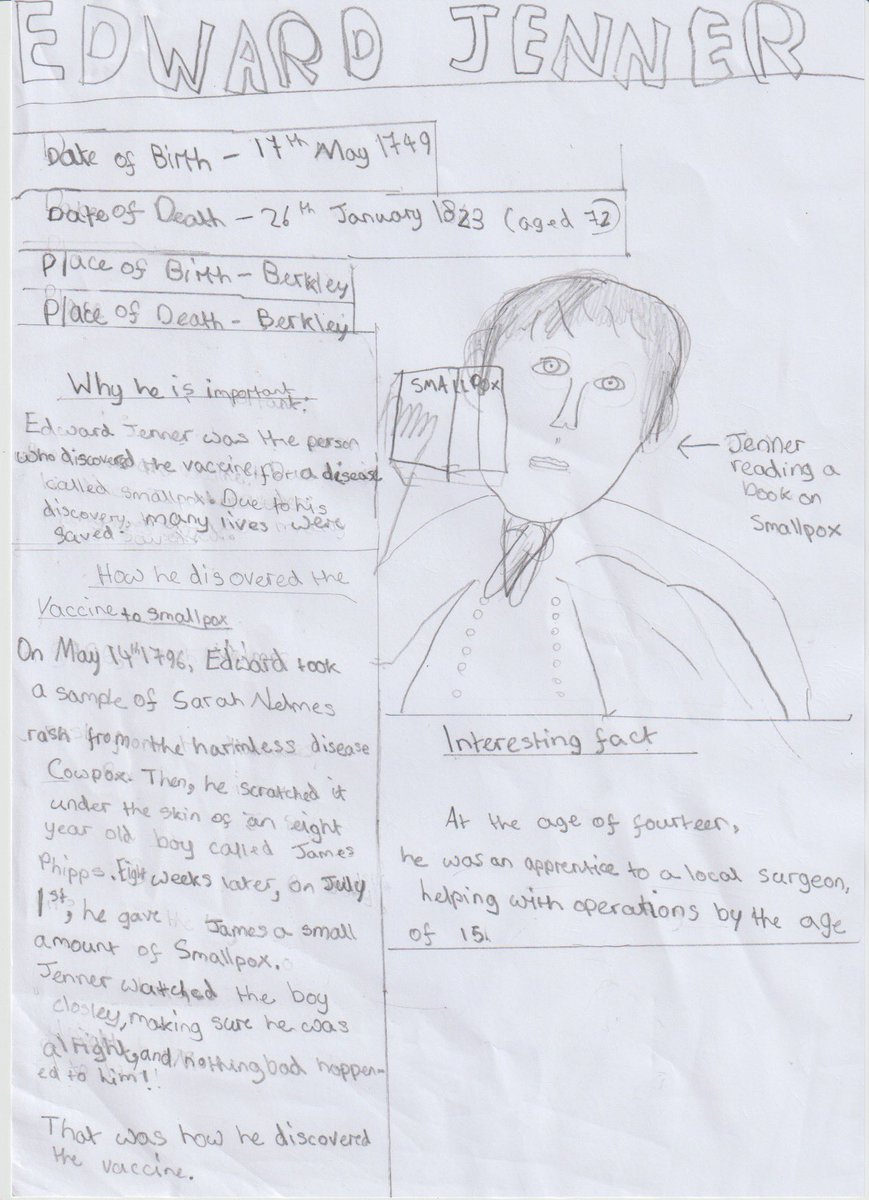 EDWARD JENNER
Date of Birth - 17th May 1749
Date of Death - 26th January 1823 (aged 72)
Place of Birth - Berkley
Place of Death - Berkley
Why he is important.
Edward Jenner was the person
who discovered the vaccine, for a disease
called smallpox. Due to his
discovery, many lives were
saved.
How he disovered the
Vaccine to smallpox
On May 14th 1796, Edward took
a sample of Sarah Nelmes
rash from the harmless disease
Cowpox. Then, he scratched it
under the skin of an eight
year old boy called James
Phipps. Eight weeks later, on July
1st, he gave James a small
amount of Smallpox.
Jenner watched the boy
closley, making sure he was
alright, and nothing bad happen-
ed to him!!
That was how he discovered
the vaccine.
SMALLPOX
Jenner
reading a
book on
Smallpox
Interesting fact
At the age of fourteen,
he was an apprentice to a local surgeon,
helping with operations by the age
of 15.